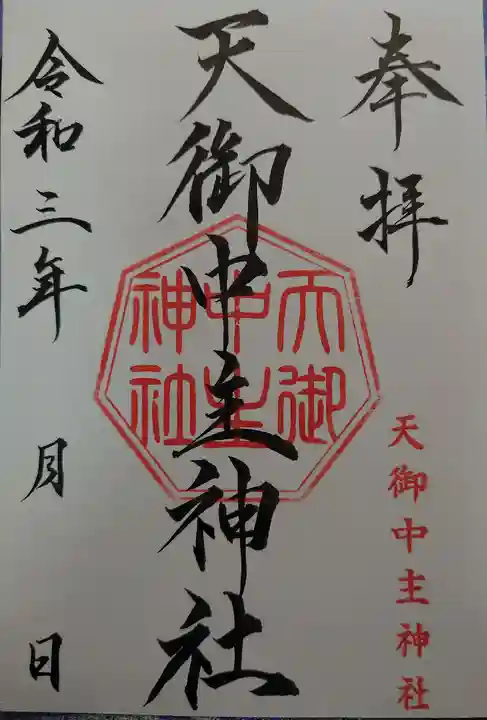 奉拝
天御中主神社
天御
中主
神社
天御中主神社
令和三年　月　日